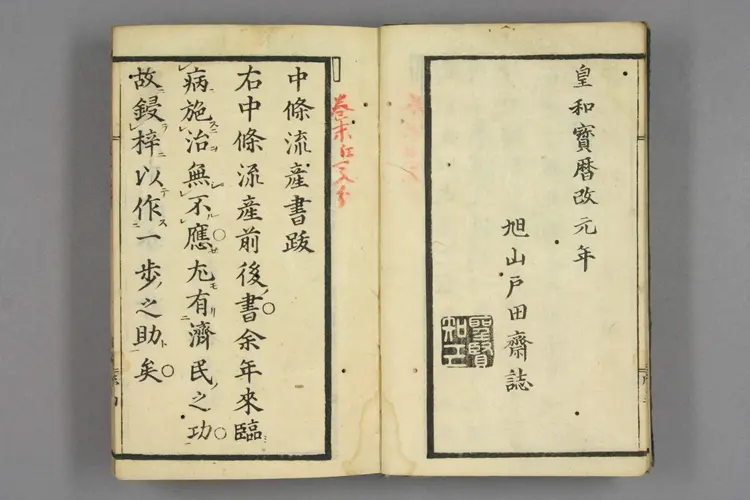 皇和寶暦改元年
旭山戸田齋誌
聖賢
知工
中條流産書跋
右中條流産前後書余年來臨
病施治無不應尤有濟民之功
故鋟梓以作一歩之助矣